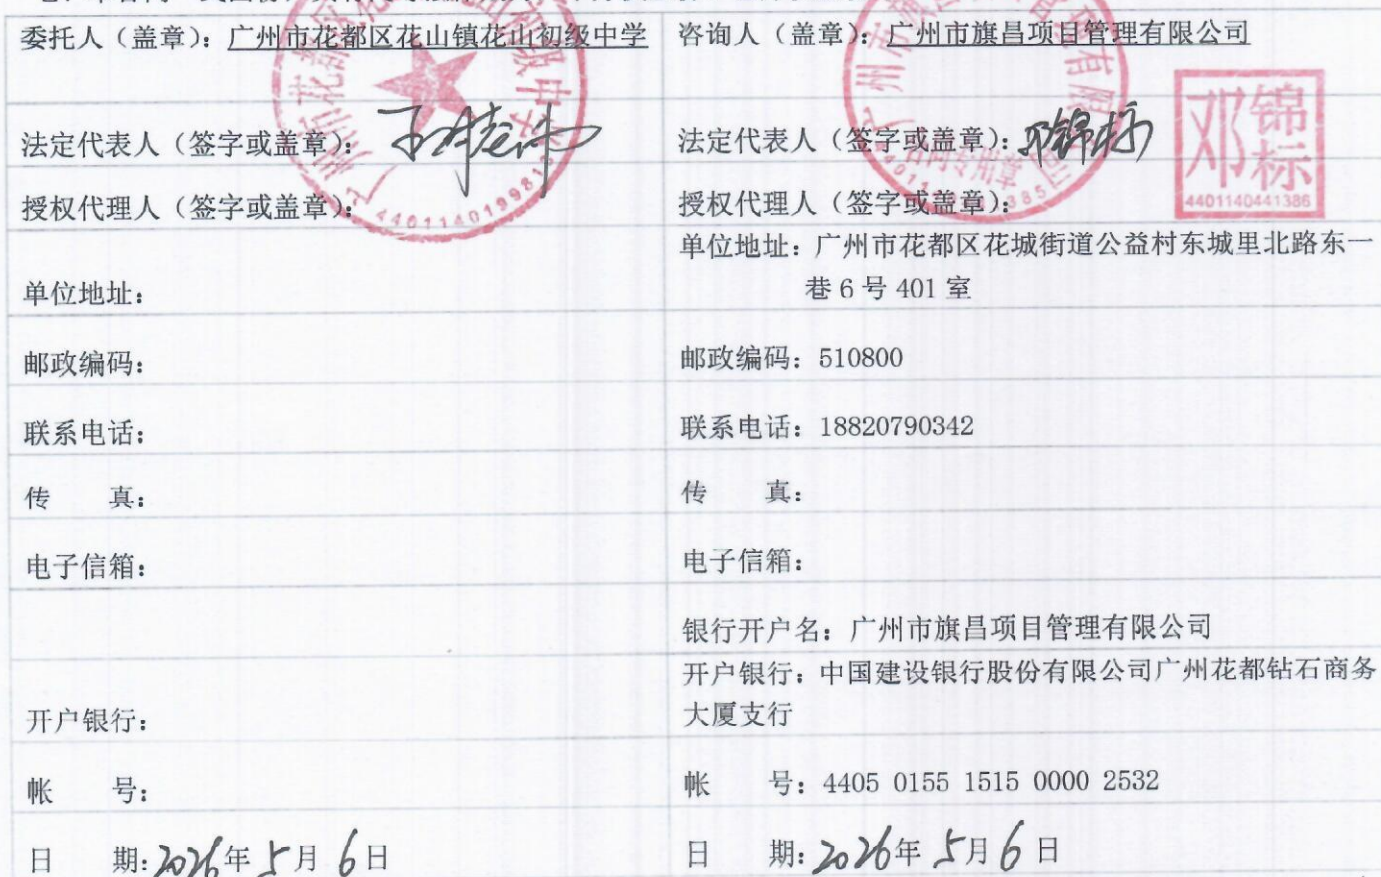 委托人（盖章）：广州市花都区花山镇花山初级中学
咨询人（盖章）：广州市旗昌项目管理有限公司
法定代表人（签字或盖章）：
法定代表人（签字或盖章）：邓锦标
邓锦标
4401140441386
授权代理人（签字或盖章）：
授权代理人（签字或盖章）：
合同专用章
单位地址：
单位地址：广州市花都区花城街道公益村东城里北路东一
巷 6 号 401 室
邮政编码：
邮政编码：510800
联系电话：
联系电话：18820790342
传　　真：
传　　真：
电子信箱：
电子信箱：
银行开户名：广州市旗昌项目管理有限公司
开户银行：
开户银行：中国建设银行股份有限公司广州花都钻石商务
大厦支行
帐　　号：
帐　　号：4405 0155 1515 0000 2532
日　　期：2026年 5月 6日
日　　期：2026年 5月 6日